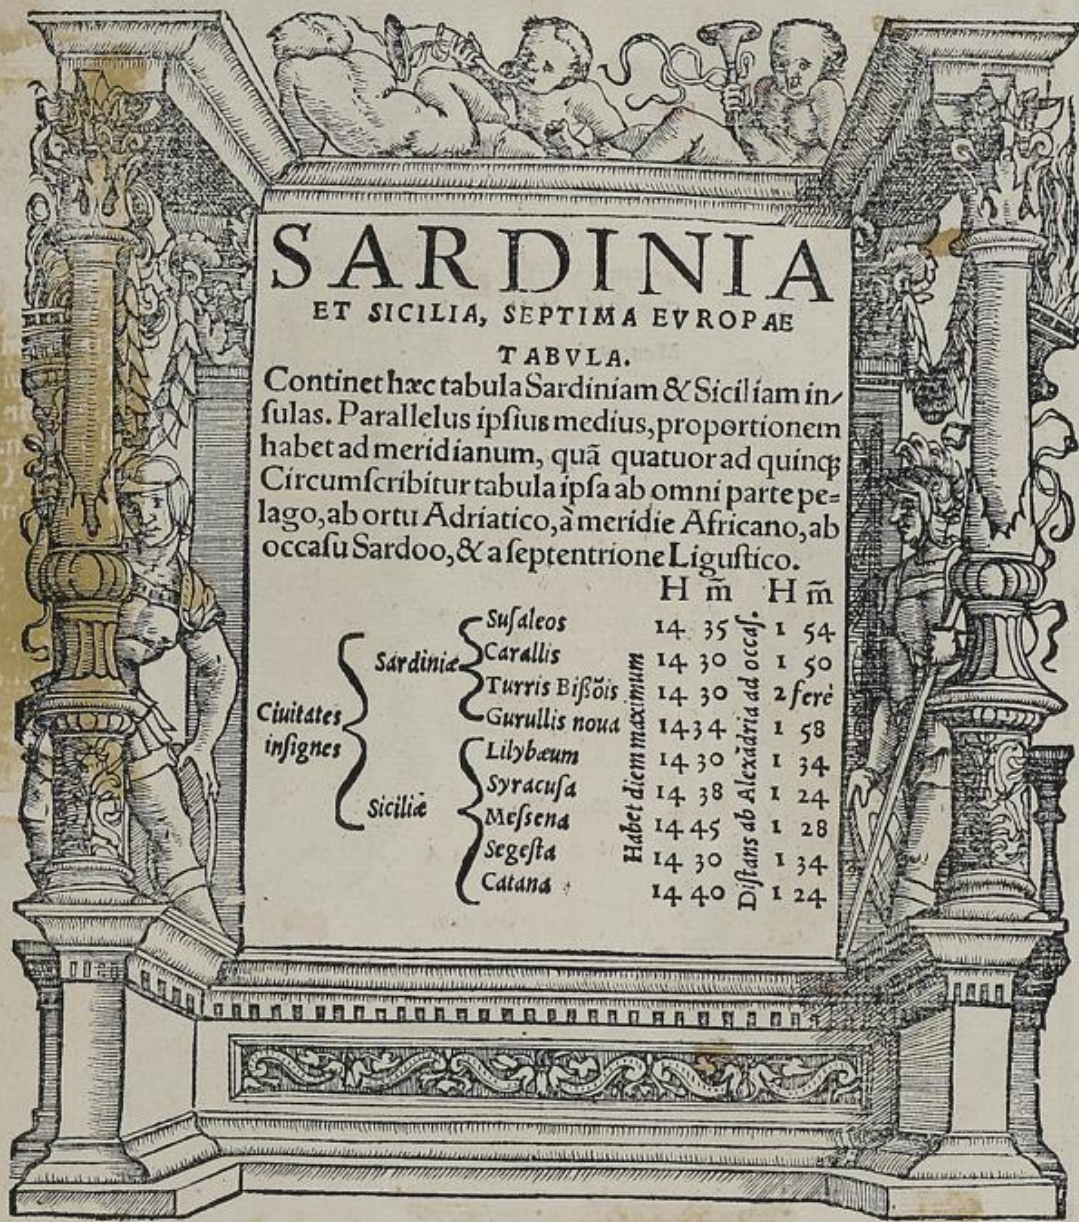 SARDINIA
ET SICILIA, SEPTIMA EVROPAE
TABVLA.
Continet hæc tabula Sardiniam & Siciliam in/
ſulas. Parallelus ipſius medius, proportionem
habet ad meridianum, quã quatuor ad quinqꝫ
Circumſcribitur tabula ipſa ab omni parte pe=
lago, ab ortu Adriatico, à meridie Africano, ab
occaſu Sardoo, & a ſeptentrione Liguſtico.
H m̃ H m̃
Ciuitates
inſignes
Sardiniæ
Siciliæ
Habet diem maximum
Diſtans ab Alexãdria ad occaſ.
Suſaleos 14 35 1 54
Carallis 14 30 1 50
Turris Bißõis 14 30 2 ferè
Gurullis noua 14 34 1 58
Lilybæum 14 30 1 34
Syracuſa 14 38 1 24
Meſſena 14 45 1 28
Segeſta 14 30 1 34
Catana 14 40 1 24